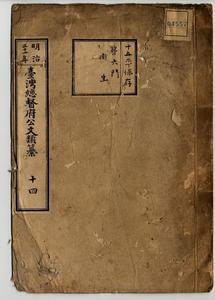 明治
三十一年
臺灣總督府公文類纂
十四
十五年保存
第六門
衛生
04557